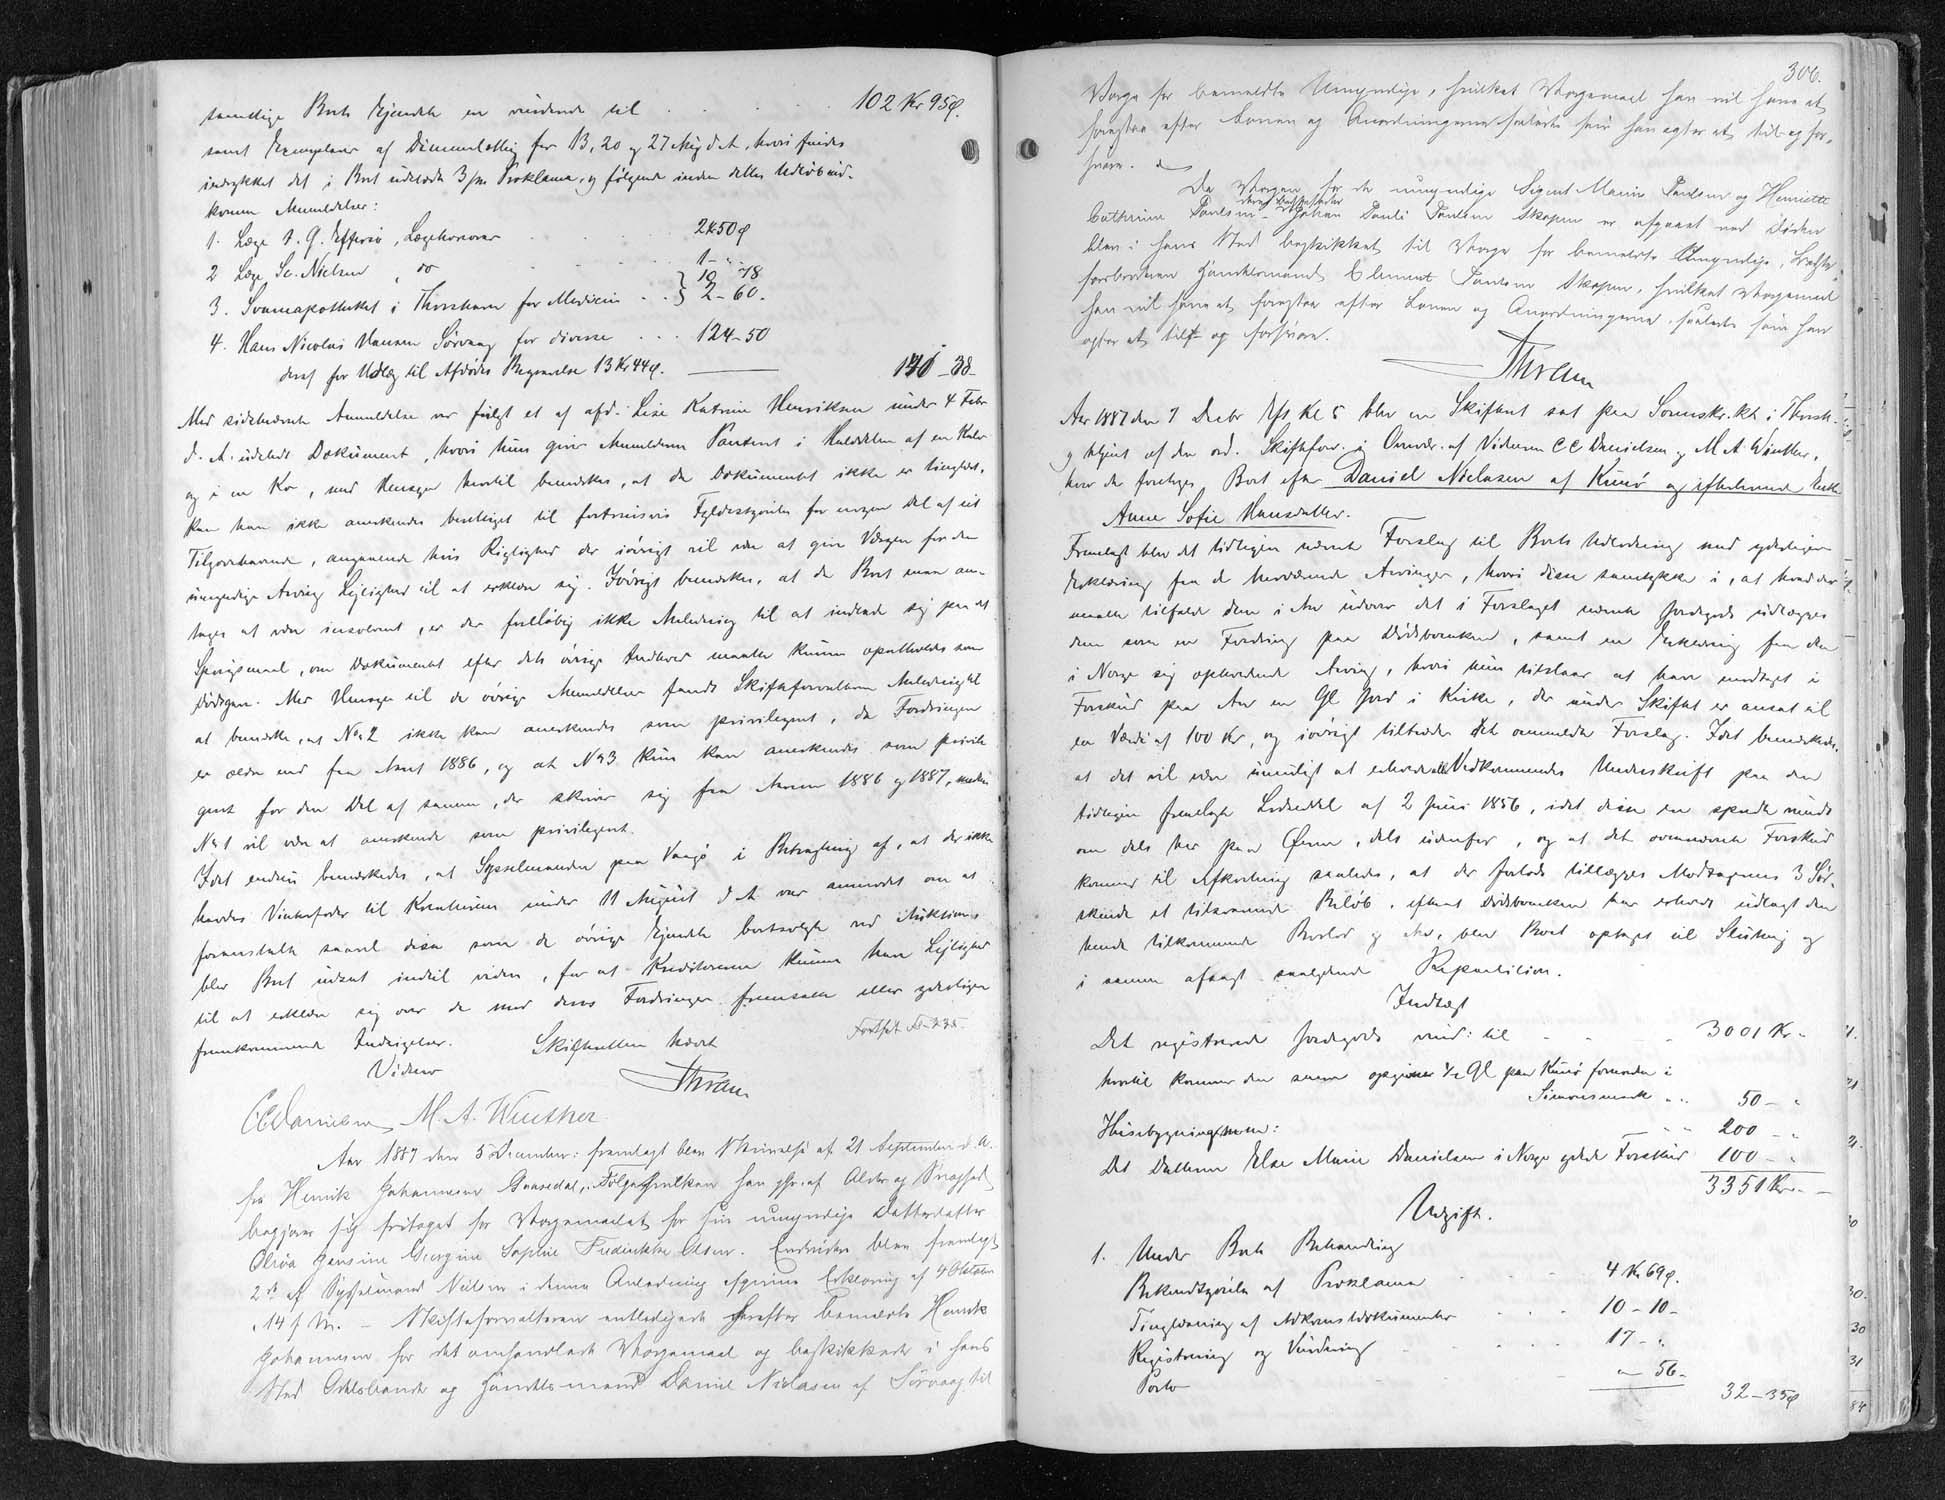 samtlige Boets Ejendele er vurderede til . . . . . 102 Kr 95 ø.
samt Exemplarer af Dimmalætting for 13, 20 og 27 Aug d. A., hvori findes
indrykket det i Boet udstedte 3 Proklama, og følgende inden dettes Udløb ind-
komne Anmeldelser:
1. Læge Effersø, Lægehonorar . . . 2 K 50 ø
2 Læge Sc. Nielsen, do . . . 1 - "
3. Svaneapotheket i Thorshavn for Medicin . . } 10 - 78 2 - 60.
4. Hans Nicolai Hansen Sørvaag for diverse . . . 124 - 50
deraf for Udlæg til Afdødes Begravelse 13 Kr 44 ø. 38 -
Med sidstnævnte Anmeldelse var fulgt et af afd. Lise Katrine Henriksen under 4 Febr
d. A. udstedt Dokument, hvori hun giver Anmelderen Panteret i Halvdelen af en Kalv
og i en Ko, med Hensyn hvortil bemærkes, at da Dokumentet ikke er tinglæst,
kan han ikke anerkendes berettiget til fortrinsvis Fyldestgørelse for nogen Del af sit
Tilgodehavende, angaaende hvis Rigtighed der iøvrigt vil være at give Værgen for den
umyndige Arving Lejlighed til at erklære sig. Iøvrigt bemærkes, at da Boet maa an-
tages at være insolvent, er der foreløbig ikke Anledning til at indlade sig paa det
Spørgsmaal, om Dokumentet efter dets øvrige Indhold maatte kunne opretholdes som
Dødsgave. Med Hensyn til de øvrige Anmeldelser fandt Skifteforvalteren Anledning til
at bemærke, at No 2 ikke kan anerkendes som privilegeret, da Fordringen
er ældre end fra Aaret 1886, og at No 3 kun kan anerkendes som privile-
geret for den Del af samme, der skriver sig fra Aarene 1886 og 1887, medens
No 1 vil være at anerkende som privilegeret.
Idet endnu bemærkedes, at Sysselmanden paa Vaagø i Betragtning af, at der ikke
havdes Vinterfoder til Kreaturerne under 11 August d. A. var anmodet om at
foranstalte saavel disse som de øvrige Ejendele bortsolgte ved Auktion,
blev Boet udsat indtil videre, for at Kreditorerne kunne have Lejlighed
til at erklære sig over de mod deres Fordringer fremsatte eller yderligere
fremkommende Indsigelser. Skifteretten hævet Fortsat
Vidner
Thran
CCDanielsen M. A. Winther
Aar 1887 den 5 December: fremlagt blev Skrivelse af 21 September d. A.
fra Henrik Johannesen Gaasedal, Følge hvilken han af Alder og Svaghed
begjærer sig fritaget for Værgemaalet for sin umyndige Datterdatter
Olivia Jensine Georgine Sophie Frederikke Olsen. Endvidere blev fremlagt
2 af Sysselmand Nielsen i denne Anledning afgivne Erklæring af 4 Oktober
14 f. M. - Skifteforvalteren entledigede herefter bemeldte Henrik
Johannesen for det omhandlede Værgemaal og beskikkede i hans
Sted Odelsbonde og Handelsmand Daniel Niclasen af Sørvaag til
306.
Værge for bemeldte Umyndige, hvilket Værgemaal han vil have at
forestaa efter Loven og Anordningerne saaledes som han agter at til- og for-
svare.
Da Værgen for de umyndige Sigert Marie Poulsen og Henriette
Cathrine Poulsen - Johan Pouli Poulsen Skopen er afgaaet ved Døden
blev i hans Sted beskikket til Værge for bemeldte Umyndige,
forbroderen Handelsmand Clement Poulsen Skopen, hvilket Værgemaal
han vil have at forestaa efter Loven og Anordningerne, saaledes som han
agter at til- og forsvare.
Thran
Aar 1887 den 7 Decbr Eft Kl 5 blev en Skifteret sat paa Sorenskr.kt. i Thorsh.
og betjent af den ord. Skifteforv. i Overvær. af Vidnerne CC Danielsen og M. A. Winther,
hvor da foretoges Boet efter Daniel Niclasen af Kunø og efterlevende Enke
Anne Sofie Hansdatter.
Fremlagt blev det tidligere nævnte Forslag til Boets Udlodning med yderligere
Erklæring fra de herværende Arvinger, hvori disse samtykke i, at hvad der
maatte tilfalde dem i Arv udover det i Forslaget nævnte Jordegods udlægges
dem som en Fordring paa Dødsboenken, samt en Erklæring fra den
i Norge sig opholdende Arving, hvori hun tilstaar at have modtaget i
Forskud paa Arv en Gl Jord i Kirke, der under Skiftet er ansat til
en Værdi af 100 Kr, og iøvrigt tiltræder det ommeldte Forslag. Idet bemærkedes,
at det vil være umuligt at erholde alle Vedkommendes Underskrift paa den
tidligere fremlagte Lodseddel af 2 Juni 1856, idet disse ere spredte rundt
om dels her paa Øerne, dels udenfor, og at det ovennævnte Forskud
kommer til Afkortning saaledes, at der forlods tillægges Modtagerens 3 Sø-
skende et tilsvarende Beløb, efterat Dødsboenken har erholdt udlagt den
hende tilkommende Boslod og Arv, blev Boet optaget til Slutning og
i samme afsagt saalydende Repartition.
Indtægt
Det registrerede Jordegods vurd: til . . . . 3001 Kr "
hvortil kommer den senere opgivne 1/2 Gl paa Kunø forneden i
Simonsmark . . 50 - "
Husebygningerne: . . 200 - "
Det Datteren Else Marie Danielsen i Norge ydede Forskud 100 - "
3351 Kr. -
Udgift.
1. Under Boets Behandling
Bekendtgørelse af Proklama . . . 4 Kr 69 ø.
Tinglæsning af Adkomstdokumenter . . . 10 - 10 -
Registrering og Vurdering . . . . 17 - "
Porto . . " - 56 -
32 - 35 ø